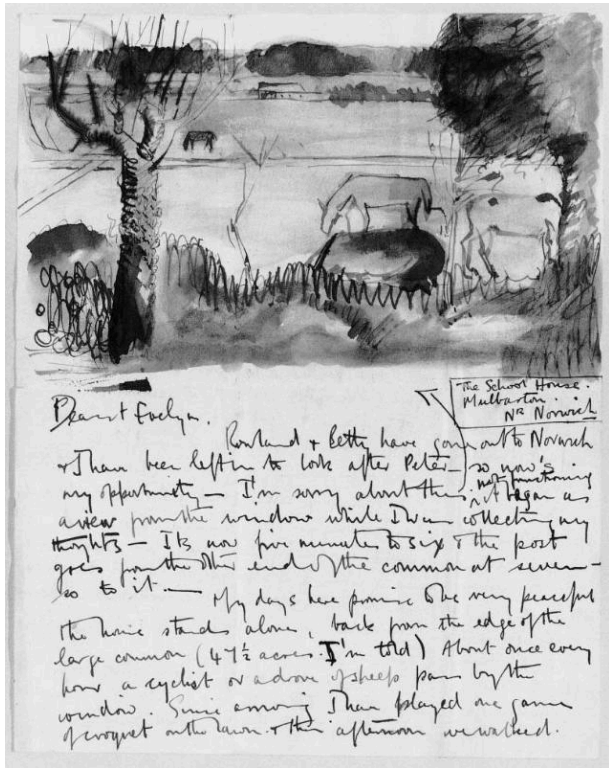 The School House.
Mulbarton.
Nr Norwich
Dearest Evelyn.
Rowland & Betty have gone out to Norwich
& I have been left in to look after Peter – so now's
my opportunity – I'm sorry about this, it began as
a view from the window while I was collecting my
thoughts – Its now five minutes to six & the post
goes from the other end of the common at seven –
so to it. —
My days here promise to be very peaceful
the house stands alone, back from the edge of the
large common (47½ acres I'm told) About once every
hour a cyclist or a drove of sheep pass by the
window. Since arriving I have played one game
of croquet on the lawn. & this afternoon we walked.